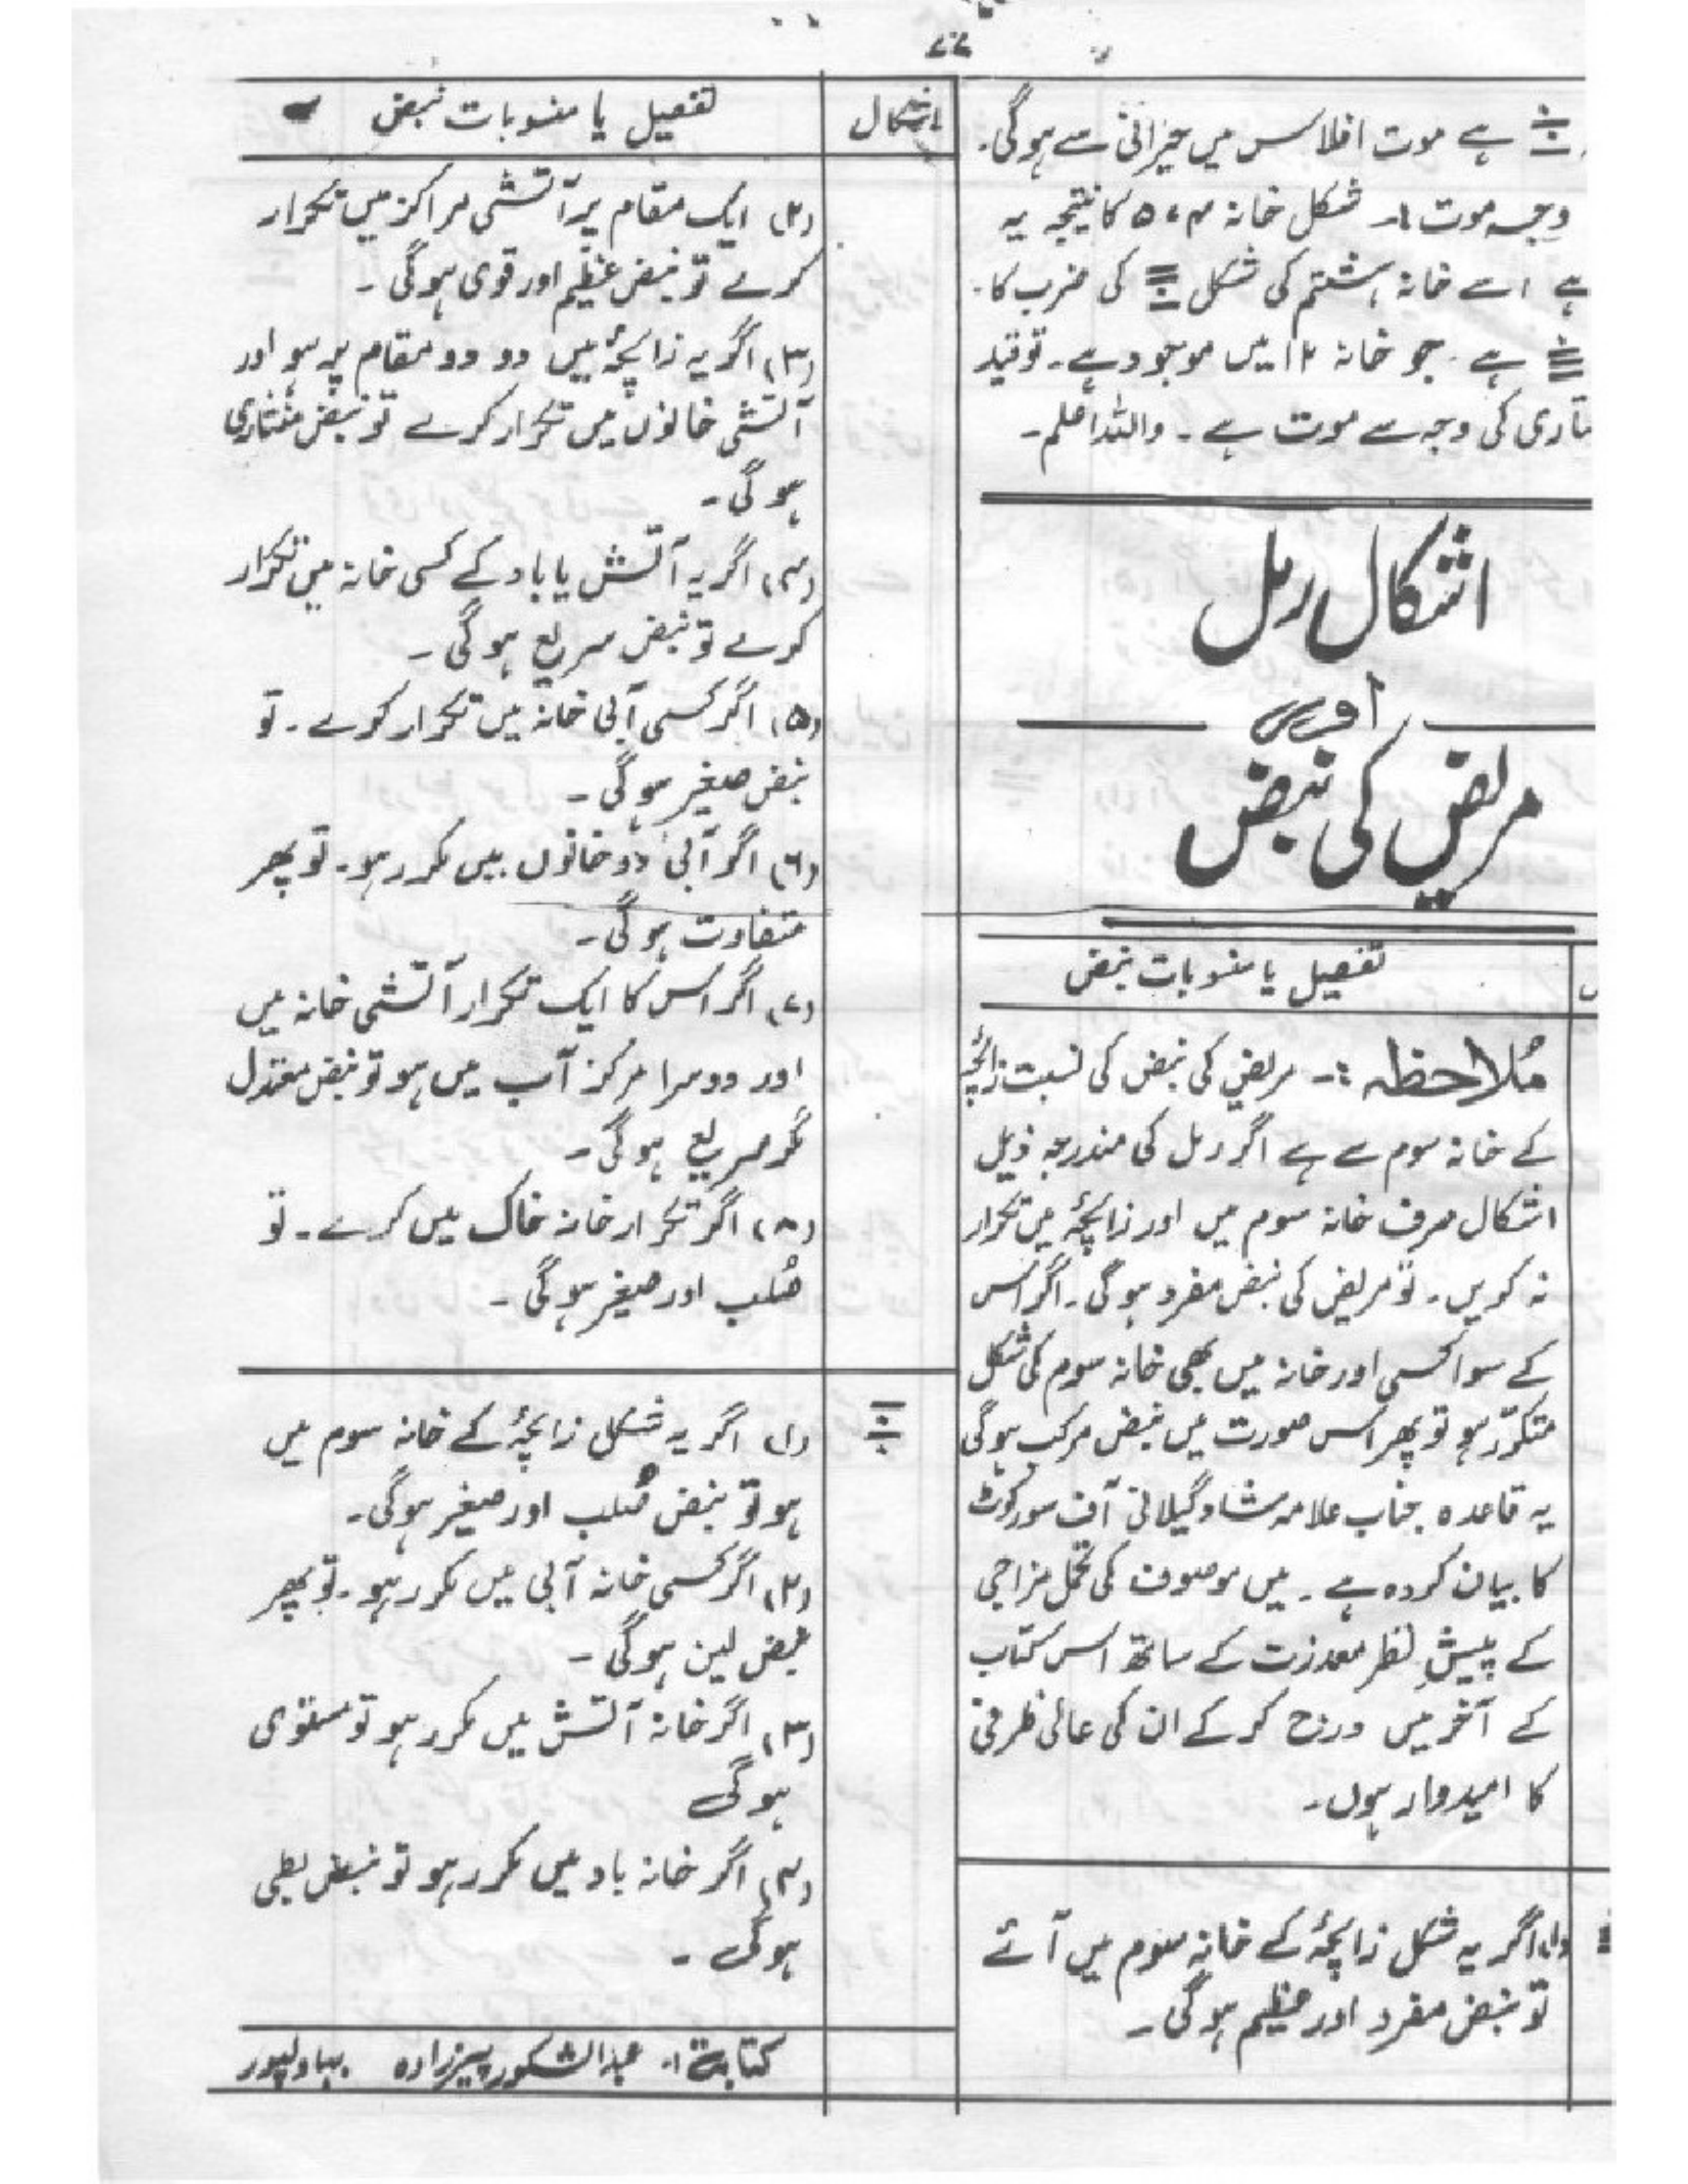 ۷۷
ہے موت افلاس میں حیرانی سے ہوگی۔
وجہ موت :۔ شکل خانہ ۴، ۵ کا نتیجہ یہ
ہے اسے خانہ ہشتم کی شکل کی ضرب کا۔
ہے۔ جو خانہ ۱۲ میں موجود ہے۔ تو قید
کی وجہ سے موت ہے۔ واللہ اعلم۔
اشکال رمل
اور
مریض کی نبض
تفصیل یا منسوبات نبض
مُلاحظہ :۔ مریض کی نبض کی نسبت زائچہ
کے خانہ سوم سے ہے اگر رمل کی مندرجہ ذیل
اشکال صرف خانہ سوم میں اور زایچۂ میں تکرار
نہ کریں۔ تو مریض کی نبض مفرد ہوگی۔ اگر اس
کے سوا کسی اور خانہ میں بھی خانہ سوم کی شکل
متکرّر ہو تو پھر اس صورت میں نبض مرکب ہوگی
یہ قاعدہ جناب علامہ شاد گیلانی آف سورکوٹ
کا بیان کردہ ہے۔ میں موصوف کی تحمل مزاجی
کے پیشِ نظر معذرت کے ساتھ اس کتاب
کے آخر میں درج کرکے ان کی عالی ظرفی
کا امیدوار ہوں۔
(۱) اگر یہ شکل زایچۂ کے خانہ سوم میں آئے
تو نبض مفرد اور عظیم ہوگی۔
اشکال
تفصیل یا منسوبات نبض
(۲) ایک مقام پر آتشی مراکز میں تکرار
کرے تو نبض عظیم اور قوی ہوگی۔
(۳) اگر یہ زایچۂ میں دو دو مقام پر ہو اور
آتشی خانوں میں تکرار کرے تو نبض
ہوگی۔
(۴) اگر یہ آتش یا باد کے کسی خانہ میں تکرار
کرے تو نبض سریع ہوگی۔
(۵) اگر کسی آبی خانہ میں تکرار کرے۔ تو
نبض صغیر ہوگی۔
(۶) اگر آبی دو خانوں میں مکرر ہو۔ تو پھر
متفاوت ہوگی۔
(۷) اگر اس کا ایک تکرار آتشی خانہ میں
اور دوسرا مرکز آب میں ہو تو نبض معتدل
مگر سریع ہوگی۔
(۸) اگر تکرار خانہ خاک میں کرے۔ تو
صُلب اور صغیر ہوگی۔
(۱) اگر یہ شکل زایچۂ کے خانہ سوم میں
ہو تو نبض صُلب اور صغیر ہوگی۔
(۲) اگر کسی خانہ آبی میں مکرر ہو۔ تو پھر
نبض لین ہوگی۔
(۳) اگر خانہ آتش میں مکرر ہو تو مستوی
ہوگی
(۴) اگر خانہ باد میں مکرر ہو تو نبض بطی
ہوگی۔
کتابت :۔ عبدالشکور پیرزادہ بہاولپور